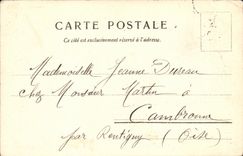 CARTE POSTALE
Ce côté est exclusivement réservé à l'adresse.
Mademoiselle Jeanne
Chez Monsieur Martin à
Cambronne
par Rantigny (Oise)